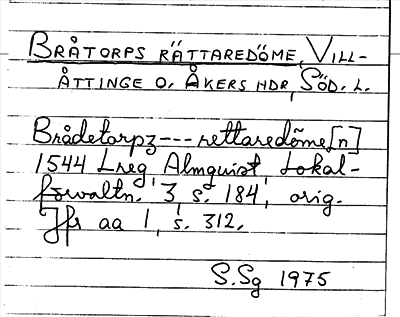 BRÅTORPS RÄTTAREDÖME, VILL-
ÅTTINGE O. ÅKERS HDR, SÖD. L.
Brådetorpz --- rettaredöme[n]
1544 Lreg Almquist, Lokal-
förvaltn. 3, s. 184, orig.
Jfr aa 1, s. 312.
S.Sg 1975